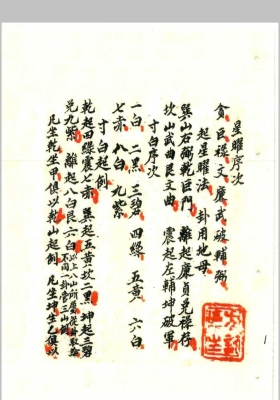 星曜序次
貪巨祿文廉武破輔弼
起星曜法 卦用地母
巽山右弼乾巨門 離起廉貞兌祿存
坎山武曲艮文曲 震起左輔坤破軍
寸白序次
一白 二黑 三碧 四綠 五黃 六白
七赤 八白 九紫
寸白起例
乾起四綠震七赤 巽起五黃坎二黑 坤起三碧
兌九紫 離起八白艮六白 以上八山所屬從卦取
不同一卦管三山例
凡坐乾坐甲俱以乾山起例 凡坐坤坐乙俱以
1